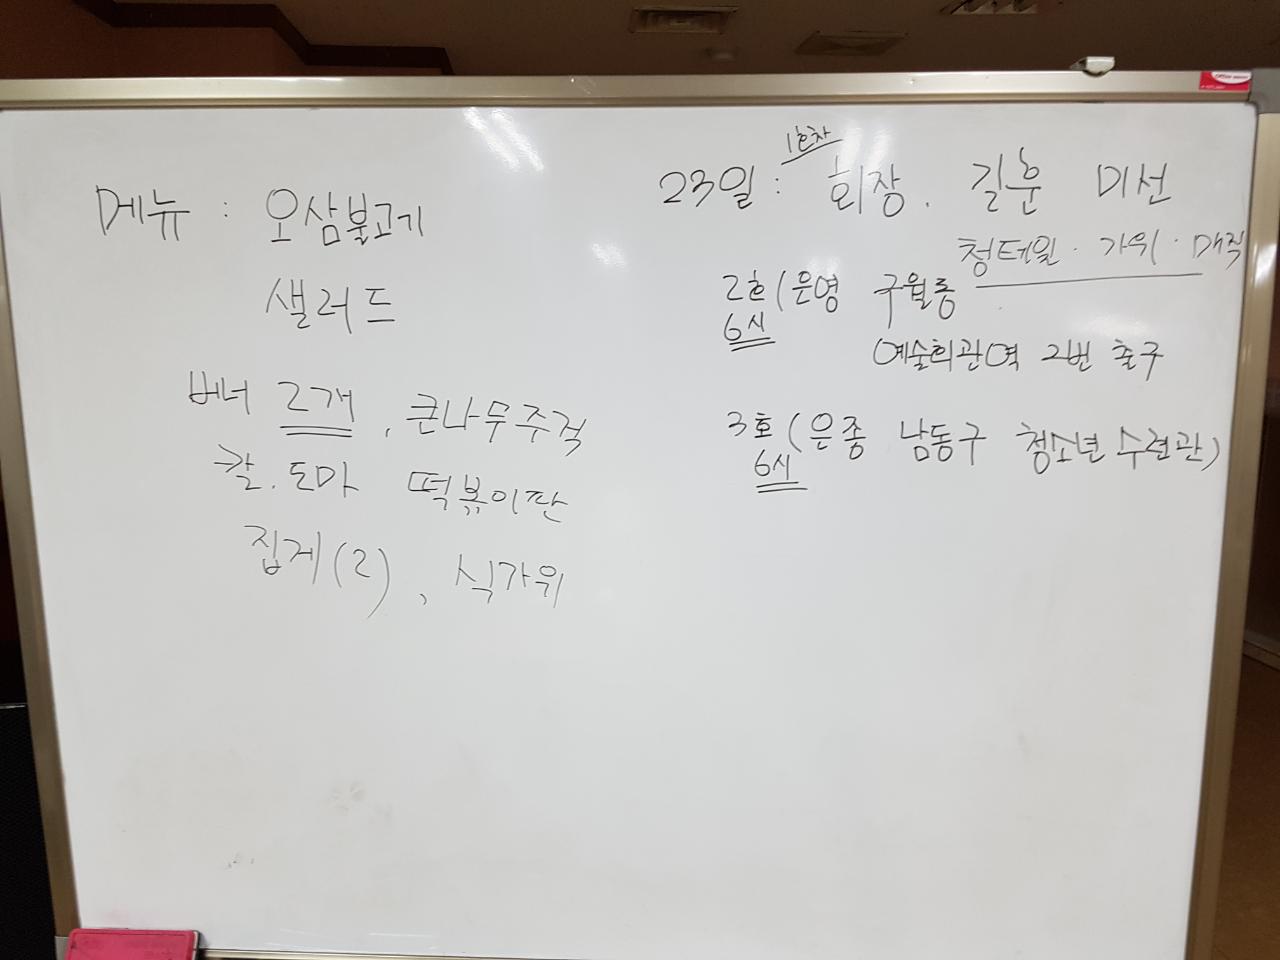 메뉴 : 오삼불고기
샐러드
버너 2개, 큰나무주걱
칼. 도마 떡볶이판
집게(2), 식가위
1호차
23일 : 회장. 길훈 미선
청테잎 · 가위 · 매직
2호(은영 구월동
6시
예술회관역 2번 출구
3호(은종 남동구 청소년수련관)
6시